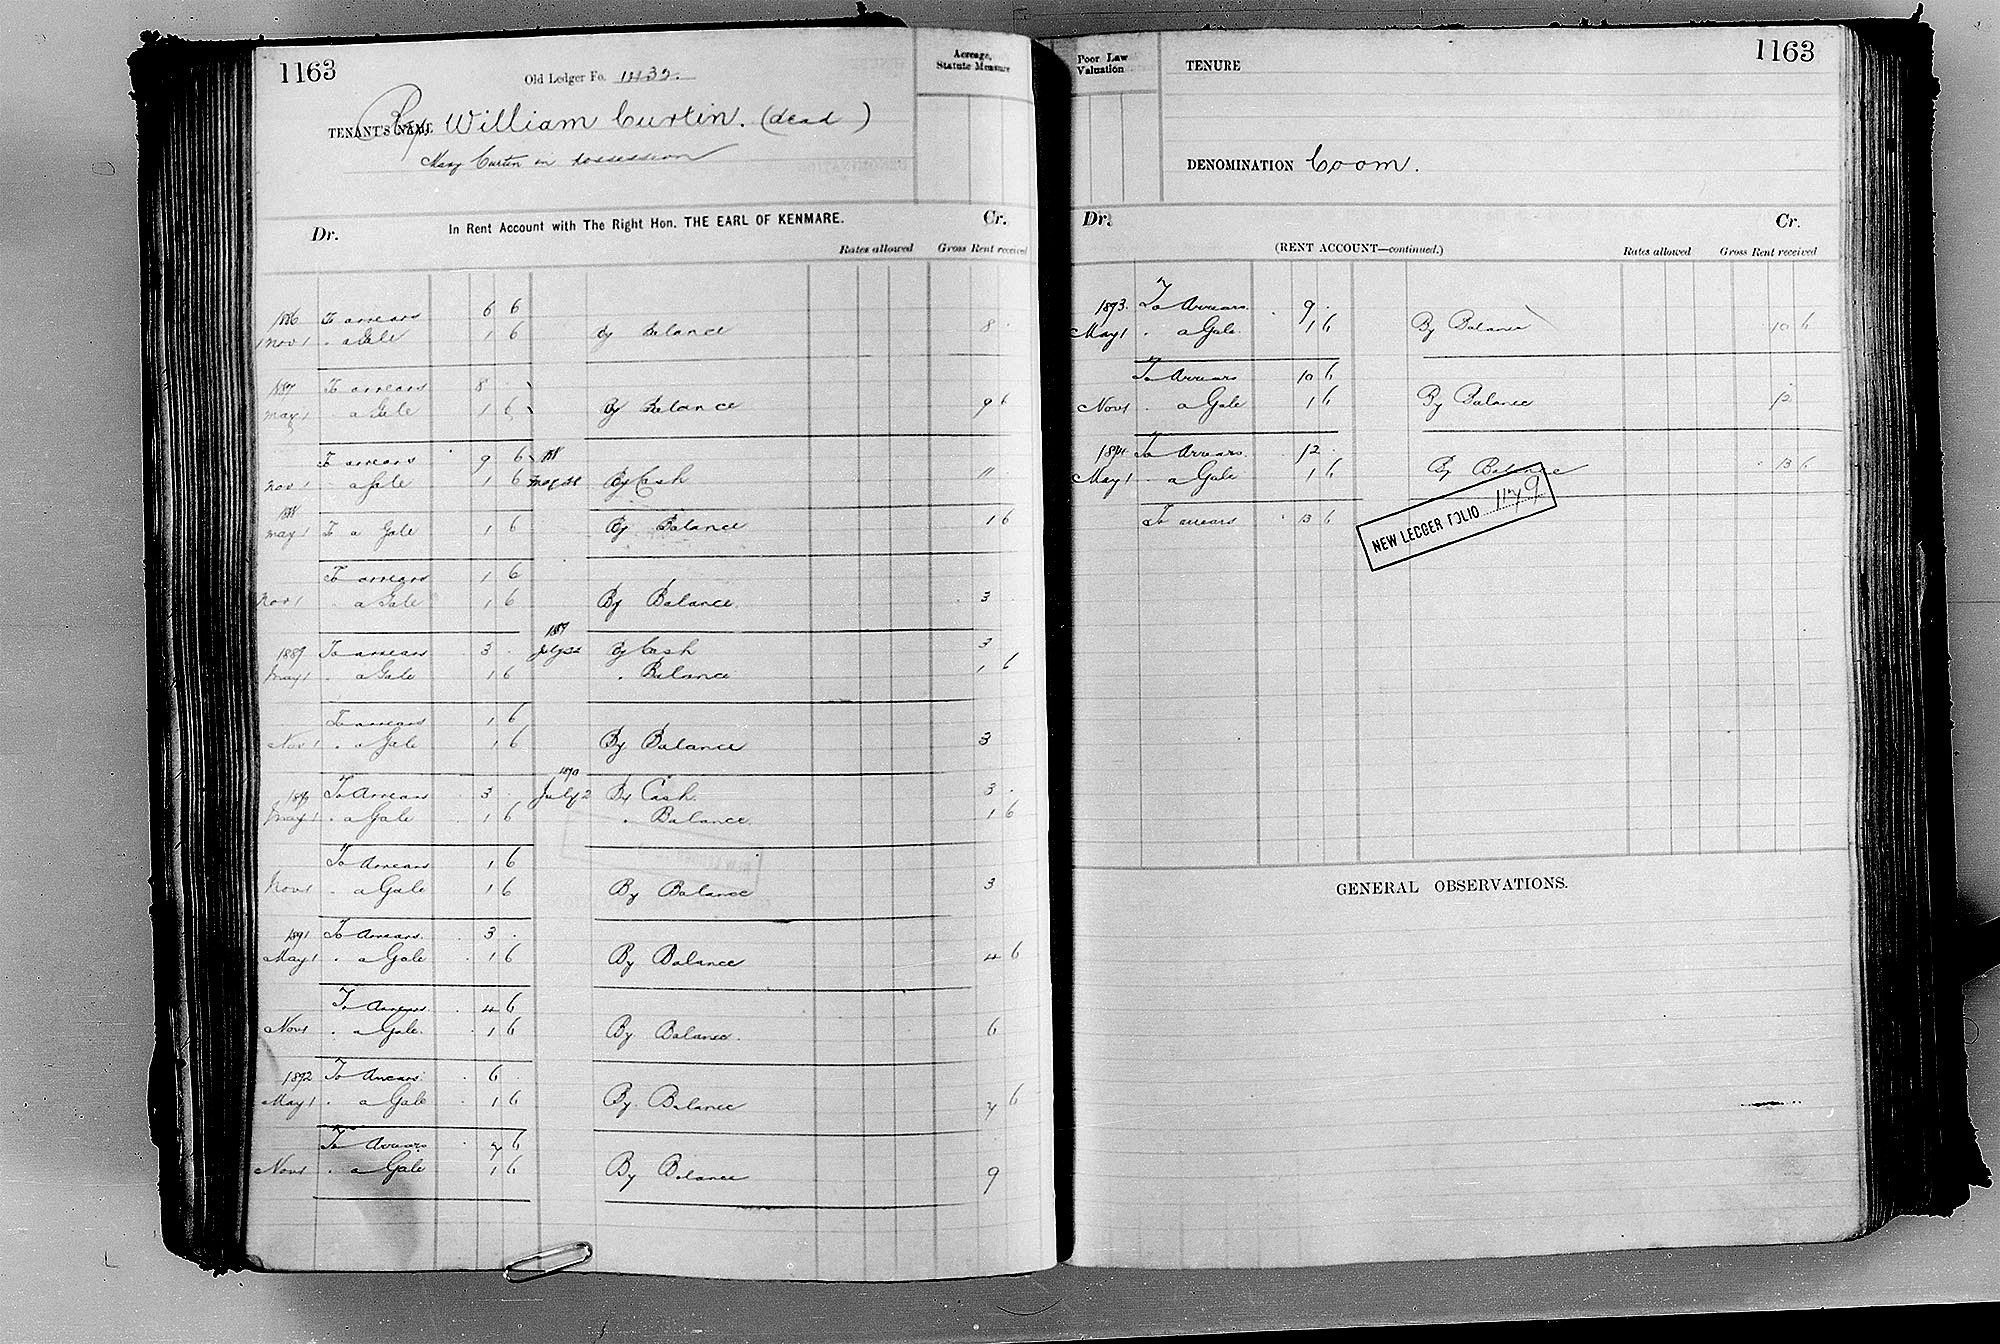 1163
Old Ledger Fo. 1132.
Acreage,
Statute Measure
TENANT'S NAME Reps William Curtin. (dead)
Mary Curtin in possession
In Rent Account with The Right Hon. THE EARL OF KENMARE.
Dr. Cr.
Rates allowed Gross Rent received
1886 To arrears 6 6
Nov 1 . a Gale 1 6 By Balance 8 .
1887 To arrears 8 .
May 1 . a Gale 1 6 By Balance 9 6
To arrears 9 6 1888
Nov 1 . a Gale 1 6 By Cash 11 .
1888
May 1 To a Gale 1 6 By Balance 1 6
To arrears 1 6
Nov 1 . a Gale 1 6 By Balance 3
1889
1889 To arrears 3 . July By Cash 3
May 1 . a Gale 1 6 . Balance 1 6
To arrears 1 6
Nov 1 . a Gale 1 6 By Balance 3
1890
1890 To Arrears 3 . July 2 By Cash 3 .
May 1 . a Gale 1 6 . Balance 1 6
To Arrears 1 6
Nov 1 . a Gale 1 6 By Balance 3
1891 To Arrears 3 .
May 1 . a Gale 1 6 By Balance 4 6
To Arrears 4 6
Nov 1 . a Gale 1 6 By Balance. 6
1892 To Arrears 6 .
May 1 . a Gale 1 6 By Balance 7 6
To Arrears 7 6
Nov 1 . a Gale 1 6 By Balance 9
1163
Poor Law
Valuation
TENURE
DENOMINATION Coom.
Dr. Cr.
(RENT ACCOUNT—continued.)
Rates allowed Gross Rent received
1893. To Arrears. 9 .
May 1 . a Gale 1 6 By Balance 10 6
To Arrears 10 6
Nov 1 . a Gale 1 6 By Balance 12
1894 To Arrears. 12 .
May 1 . a Gale 1 6 By Balance 13 6
To arrears 13 6
NEW LEDGER FOLIO 1179
GENERAL OBSERVATIONS.